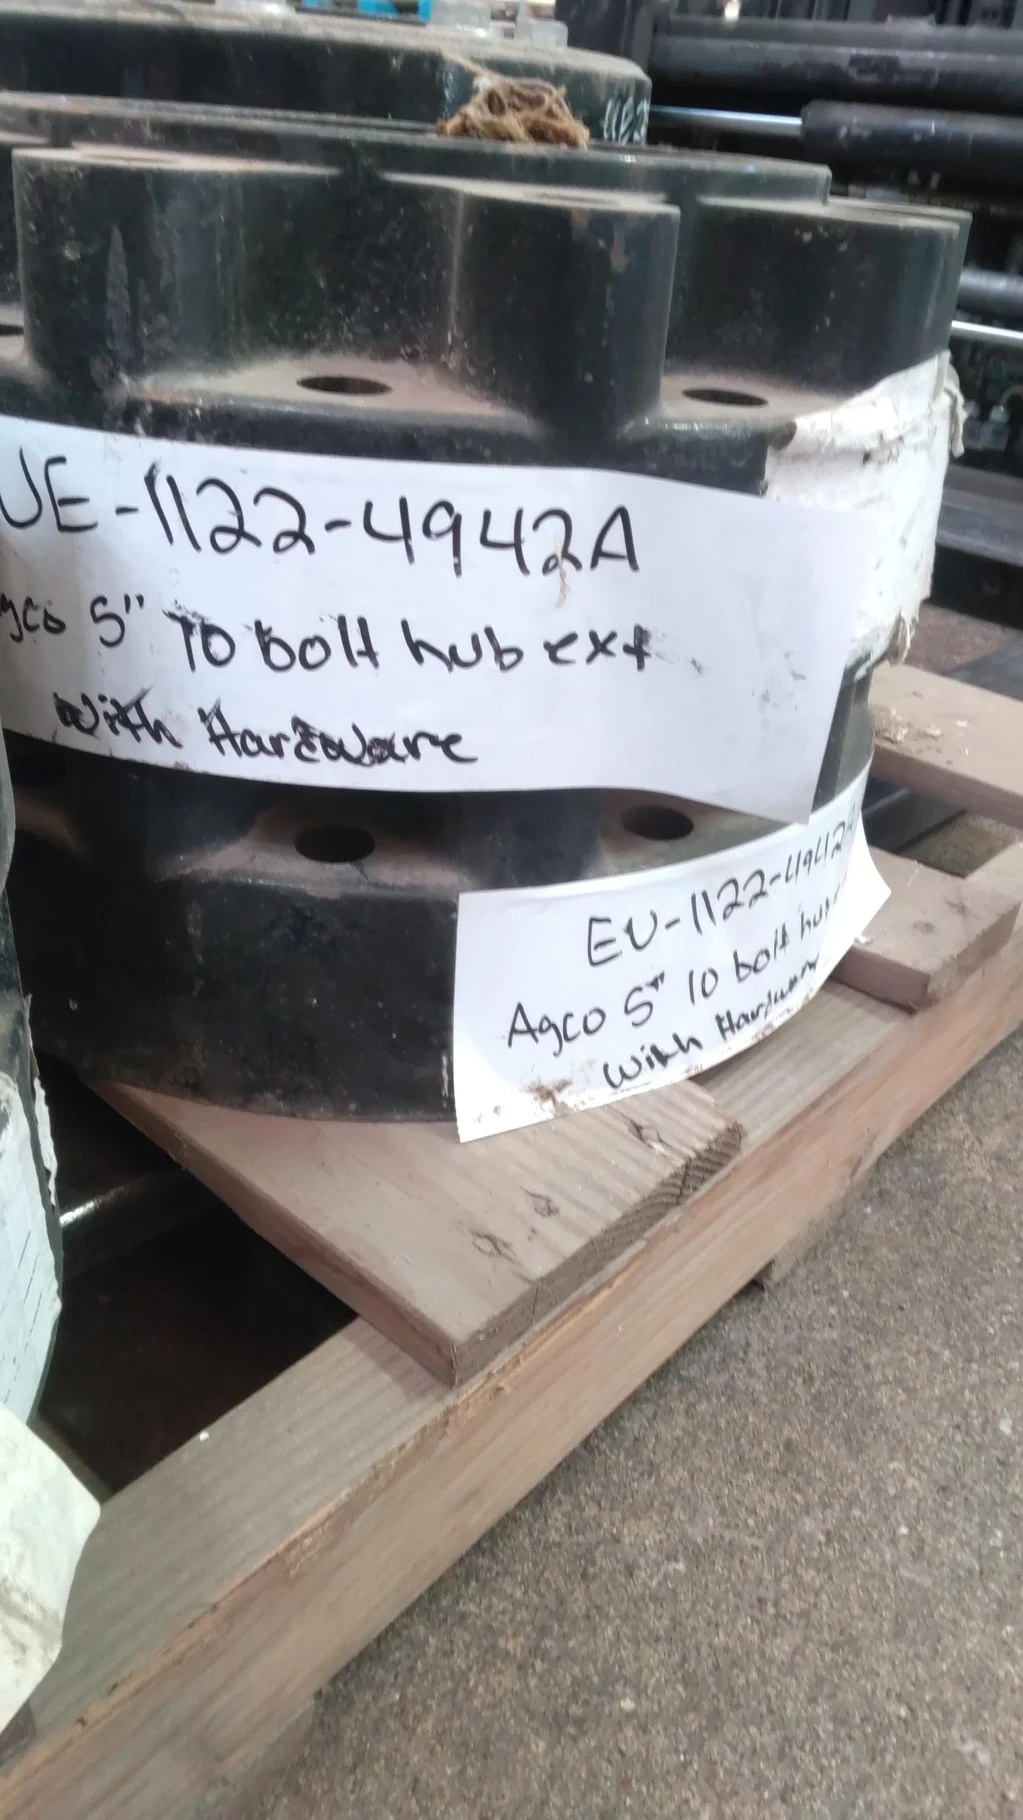 UE-1122-4942A
gco 5" 10 bolt hub ext
With Hardware
EU-1122-4942A
Agco 5" 10 bolt hu
With Hardware